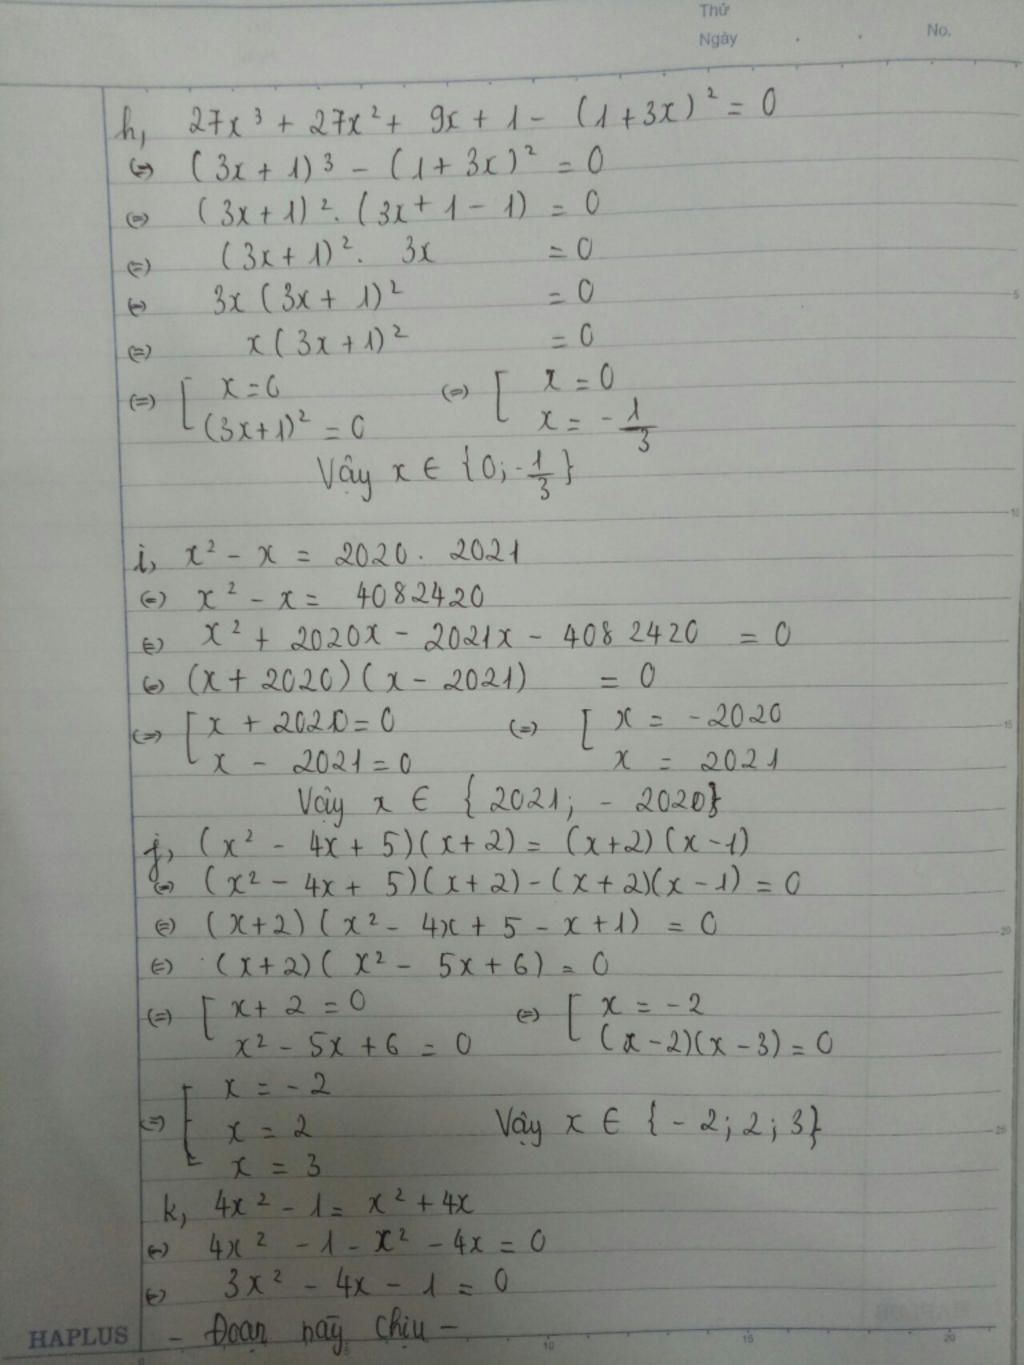 Thứ
Ngày . . No.
h, 27x³ + 27x² + 9x + 1 - (1+3x)² = 0
(=) (3x + 1)³ - (1 + 3x)² = 0
(=) (3x+1)². (3x + 1 - 1) = 0
(=) (3x+1)². 3x = 0
(=) 3x (3x + 1)² = 0
(=) x (3x+1)² = 0
(=) [ x = 0 (=) [ x = 0
(3x+1)² = 0 x = -1/3
Vậy x ∈ {0; -1/3}
i, x² - x = 2020. 2021
(=) x² - x = 4082420
(=) x² + 2020x - 2021x - 4082420 = 0
(=) (x + 2020)(x - 2021) = 0
(=) [ x + 2020 = 0 (=) [ x = -2020
x - 2021 = 0 x = 2021
Vậy x ∈ {2021; -2020}
j, (x² - 4x + 5)(x+2) = (x+2)(x-1)
(=) (x² - 4x + 5)(x+2) - (x+2)(x-1) = 0
(=) (x+2)(x² - 4x + 5 - x + 1) = 0
(=) (x+2)(x² - 5x + 6) = 0
(=) [ x + 2 = 0 (=) [ x = -2
x² - 5x + 6 = 0 (x-2)(x-3) = 0
(=) [ x = -2
x = 2 Vậy x ∈ {-2; 2; 3}
x = 3
k, 4x² - 1 = x² + 4x
(=) 4x² - 1 - x² - 4x = 0
(=) 3x² - 4x - 1 = 0
- Đoạn nãy chịu -
HAPLUS
5
10
15
20
25
5 10 15 20